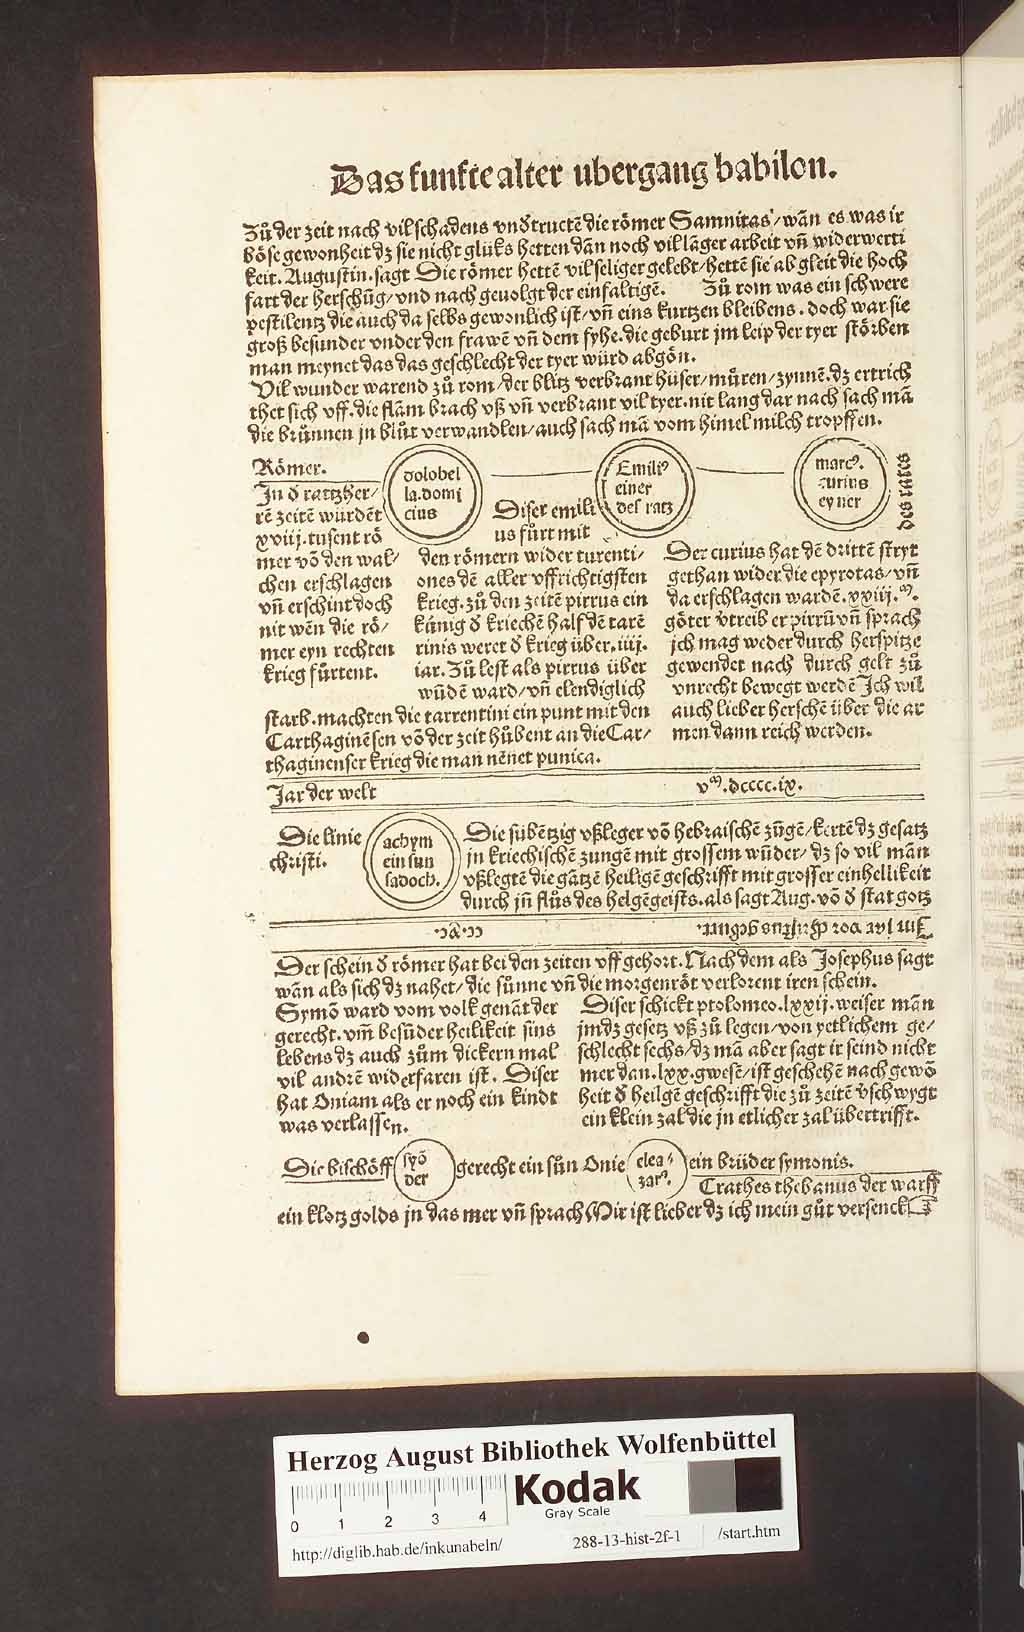 Das funfte alter ubergang babilon.
Zů der zeit nach vil schadens vnd̕tructē die rȯmer Samnitas/wān es was ir
bȯse gewonheit dz sie nicht gluks hetten dan noch vil lāger arbeit vn̄ widerwerti
keit. Augustin. sagt Die rȯmer hettē vil seliger gelebt/hettē sie ab gleit die hoch
fart der herschūg/vnd nach geuolgt der einfaltigē. Zů rom was ein schwere
pestilentz die auch da selbs gewonlich ist/vn̄ eins kurtzen bleibens. doch war sie
groß besunder vnder den frawē vn̄ dem fyhe. die geburt jm leip der tyer stȯrben
man meynet das das geschlecht der tyer würd abgȯn.
Vil wunder warend zů rom/der blitz verbrant hüser/můren/zynnē. dz ertrich
thet sich vff. die flām brach vß vn̄ verbrant vil tyer. nit lang dar nach sach mā
die brůnnen jn blůt verwandlen/auch sach mā vom himel milch tropffen.
Rȯmer.
dolobel
la. domi
cius
Emili⁹
einer
des ratz
marc⁹.
curius
eyner
des rates
In d̕ rattzher/
rē zeitē wurdēt
xviij. tusent rȯ
mer vō den wal/
chen erschlagen
vn̄ erschint doch
nit wēn die rȯ/
mer eyn rechten
krieg fůrtent.
Diser emili
us fůrt mit
den rȯmern wider turenti/
ones dē aller vffrichtigsten
krieg. zů den zeitē pirrus ein
künig d̕ kriechē half dē tarē
rinis weret d̕ krieg über. iiij.
iar. Zů lest als pirrus über
wūdē ward/vn̄ elendiglich
starb. machten die tarrentini ein punt mit den
Carthaginēsen vō der zeit hůbent an die Car/
thaginenser krieg die man nēnet punica.
Der curius hat dē drittē stryt
gethan wider die epyrotas/vn̄
da erschlagen wardē. xxiij.ᵐ.
gȯter v̕treib er pirrū vn̄ sprach
jch mag weder durch herspitze
gewendet nach durch gelt zů
vnrecht bewegt werdē Ich wil
auch lieber herschē über die ar
men dann reich werden.
Jar der welt vᵐ. dcccc. ix.
Die linie
christi.
achym
ein sun
sadoch.
Die subētzig vßleger vō hebraischē zūgē/kertē dz gesatz
jn kriechischē zungē mit grossem wūder/dz so vil mān
vßlegtē die gātzē heiligē geschrifft mit grosser einhellikeit
durch jn̄ flůs des helgēgeists. als sagt Aug. vō d̕ stat gotz
Im iar vor christus geburt. cc. xc.
Der schein d̕ rȯmer hat bei den zeiten vff gehort. Nach dem als Josephus sagt
wān als sich dz nahet/die sůnne vn̄ die morgenrȯt verlorent iren schein.
Symō ward vom volk genāt der
gerecht. vm̄ besūder heilikeit sins
lebens dz auch zům dickern mal
vil andrē widerfaren ist. Diser
hat Oniam als er noch ein kindt
was verlassen.
Diser schickt ptolomeo. lxxij. weiser mān
jm dz gesetz vß zů legen/von yetlichem ge/
schlecht sechs/dz mā aber sagt ir seind nicht
mer dan. lxx. gwesē/ist geschehē nach gewō
heit d̕ heilgē geschrifft die zů zeitē v̕schwygt
ein klein zal die jn etlicher zal übertrifft.
Die bischȯff syō der gerecht ein sůn Onie elea/ zar⁹. ein brüder symonis.
Crathes thebanus der warff
ein klotz golds jn das mer vn̄ sprach Mir ist lieber dz ich mein gůt versenck
Herzog August Bibliothek Wolfenbüttel
0 1 2 3 4
Kodak
Gray Scale
http://diglib.hab.de/inkunabeln/ 288-13-hist-2f-1 /start.htm